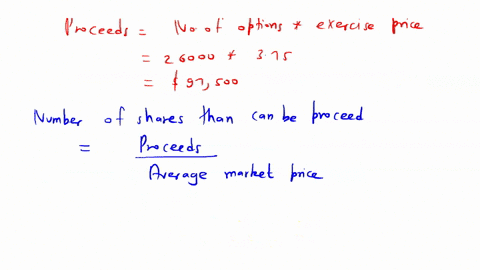 Proceeds = No of options * exercise price
= 26000 * 3.75
= $97,500
Number of shares than can be proceed
= Proceeds
Average market price